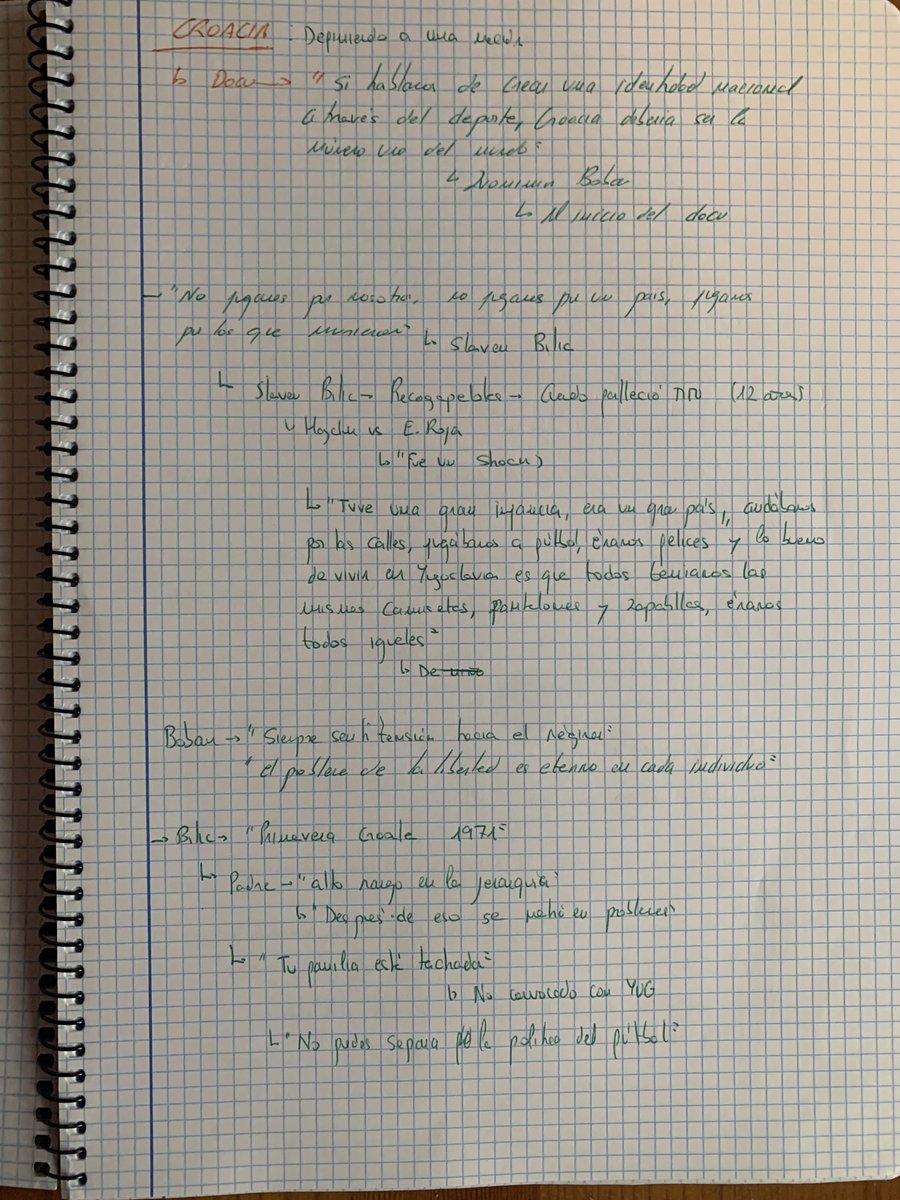 CROACIA: Definiendo a una nación
↳ Docu → "Si hablamos de crear una identidad nacional
a través del deporte, Croacia debería ser la
número uno del mundo"
↳ Boban
↳ Al inicio del docu
→ "No jugamos por nosotros, no jugamos por un país, jugamos
por los que murieron" ↳ Slaven Bilic
↳ Slaven Bilic → Recogepelotas → Cuando falleció TITO (12 años)
↳ Hajduk vs E. Roja
↳ "Fue un shock"
↳ "Tuve una gran infancia, era un gran país, andábamos
por las calles, jugábamos a fútbol, éramos felices y lo bueno
de vivir en Yugoslavia es que todos teníamos las
mismas camisetas, pantalones y zapatillas, éramos
todos iguales"
↳ De
Boban → "Siempre sentí tensión hacia el régimen"
"el problema de la libertad es eterno en cada individuo"
→ Bilic → "Primavera Croata 1971"
↳ Padre → "alto rango en la jerarquía"
↳ "Después de eso se metió en problemas"
↳ "Tu familia está tachada"
↳ No convocado con YUG
↳ "No puedes separar la política del fútbol"